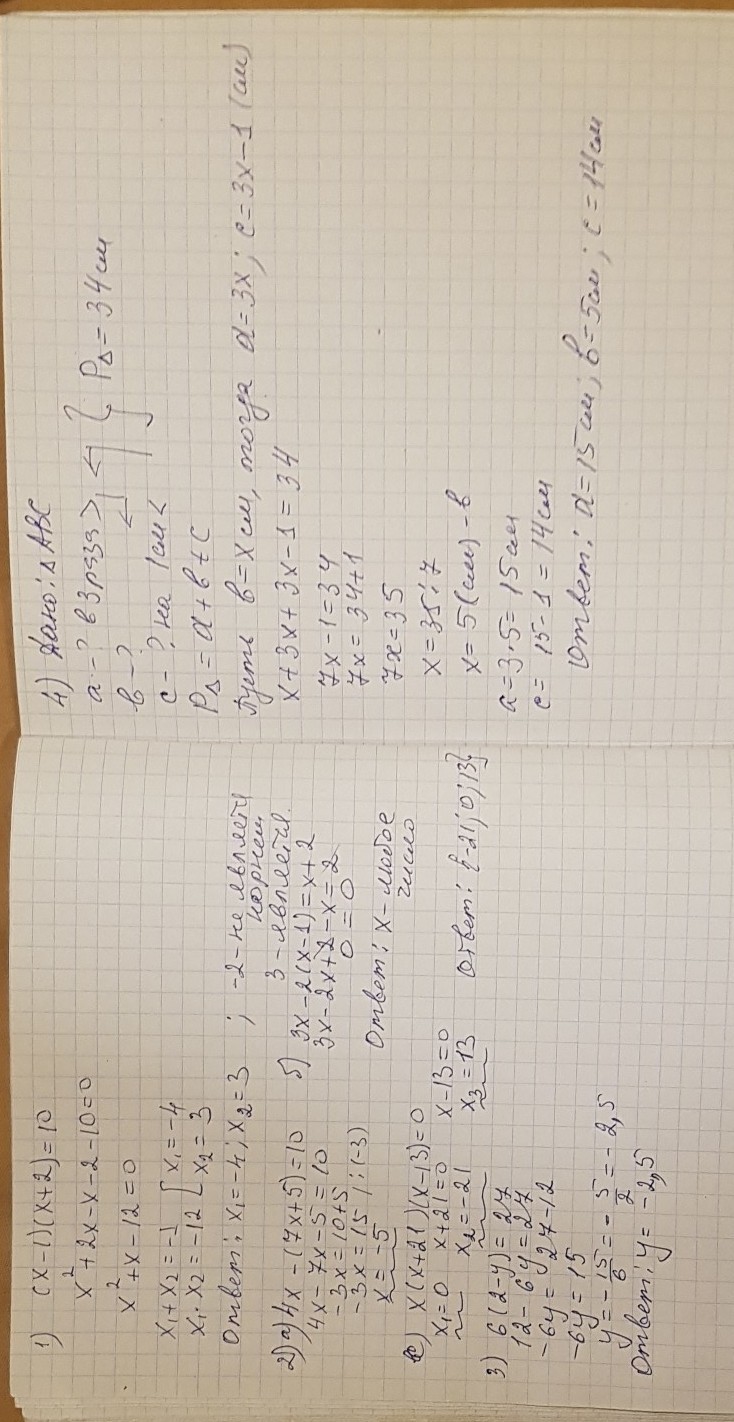 1) (x-1)(x+2)=10
x²+2x-x-2-10=0
x²+x-12=0
x₁+x₂=-1 [ x₁=-4
x₁·x₂=-12 [ x₂=3
Ответ: x₁=-4; x₂=3 ; -2-не является корнем
3-является.
2) а) 4x-(7x+5)=10
4x-7x-5=10
-3x=10+5
-3x=15 | :(-3)
x=-5
б) 3x-2(x-1)=x+2
3x-2x+2-x=2
0=0
Ответ: x-любое
число
в) x(x+21)(x-13)=0
x₁=0 x+21=0 x-13=0
x₂=-21 x₃=13 Ответ: {-21; 0; 13}
3) 6(2-y)=27
12-6y=27
-6y=27-12
-6y=15
y=-15/6=-5/2=-2,5
Ответ: y=-2,5
4) Дано: △ABC
a-? в 3 раза >
b-? } P△=34см
c-? на 1см <
P△=a+b+c
Пусть b=x см, тогда a=3x; c=3x-1 (см)
x+3x+3x-1=34
7x-1=34
7x=34+1
7x=35
x=35:7
x=5(см)-b
a=3·5=15см
c=15-1=14см
Ответ: a=15см; b=5см; c=14см